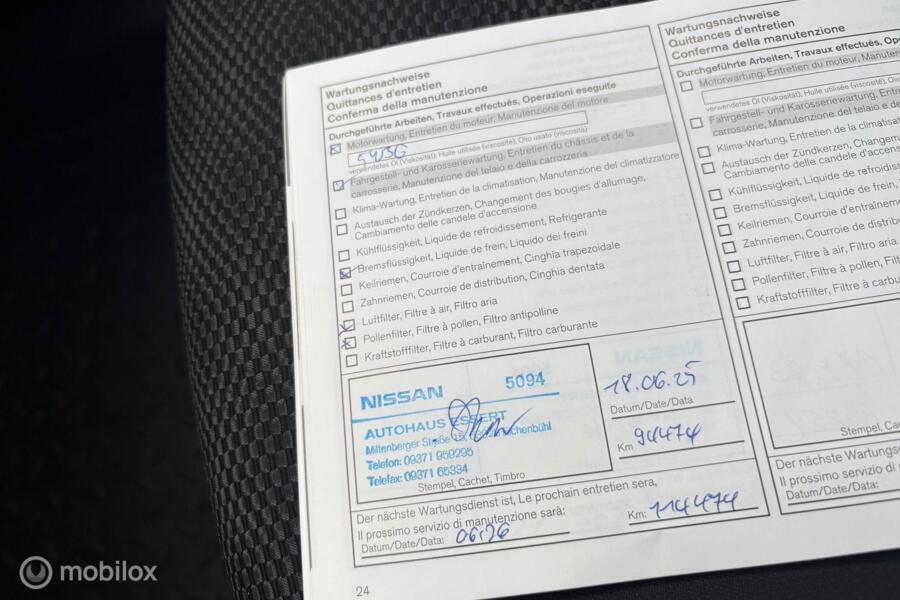 Wartungsnachweise
Quittances d'entretien
Conferma della manutenzione
Durchgeführte Arbeiten, Travaux effectués, Operazioni eseguite
Motorwartung, Entretien du moteur, Manutenzione del motore
5W30
verwendetes Öl (Viskosität), Huile utilisée (viscosité), Olio usato (viscosità)
Fahrgestell- und Karossenwartung, Entretien du châssis et de la
carrosserie, Manutenzione del telaio e della carrozzeria
Klima-Wartung, Entretien de la climatisation, Manutenzione del climatizzatore
Austausch der Zündkerzen, Changement des bougies d'allumage,
Cambiamento delle candele d'accensione
Kühlflüssigkeit, Liquide de refroidissement, Refrigerante
Bremsflüssigkeit, Liquide de frein, Liquido dei freini
Keilriemen, Courroie d'entraînement, Cinghia trapezoidale
Zahnriemen, Courroie de distribution, Cinghia dentata
Luftfilter, Filtre à air, Filtro aria
Pollenfilter, Filtre à pollen, Filtro antipolline
Kraftstofffilter, Filtre à carburant, Filtro carburante
NISSAN 5094
AUTOHAUS ESSERT
Miltenberger Straße
Telefon: 09371 959295
Telefax: 09371 65334
Stempel, Cachet, Timbro
18.06.25
Datum/Date/Data
Km 94474
Der nächste Wartungsdienst ist, Le prochain entretien sera,
Il prossimo servizio di manutenzione sarà:
Datum/Date/Data: 06/26 Km: 114474
24
Wartungsnachweise
Quittances d'entretien
Conferma della manutenzione
Durchgeführte Arbeiten, Travaux effectués,
Motorwartung, Entretien du moteur,
verwendetes Öl (Viskosität), Huile utilisée (viscosité), Olio
Fahrgestell- und Karossenwartung,
carrosserie, Manutenzione del telaio e
Klima-Wartung, Entretien de la
Austausch der Zündkerzen,
Cambiamento delle candele
Kühlflüssigkeit, Liquide de
Bremsflüssigkeit, Liquide de frein,
Keilriemen, Courroie
Zahnriemen, Courroie de
Luftfilter, Filtre à air, Filtro aria
Pollenfilter, Filtre à pollen,
Kraftstofffilter, Filtre à
Stempel,
Der nächste
Il prossimo servizio di
Datum/Date/Data:
mobilox